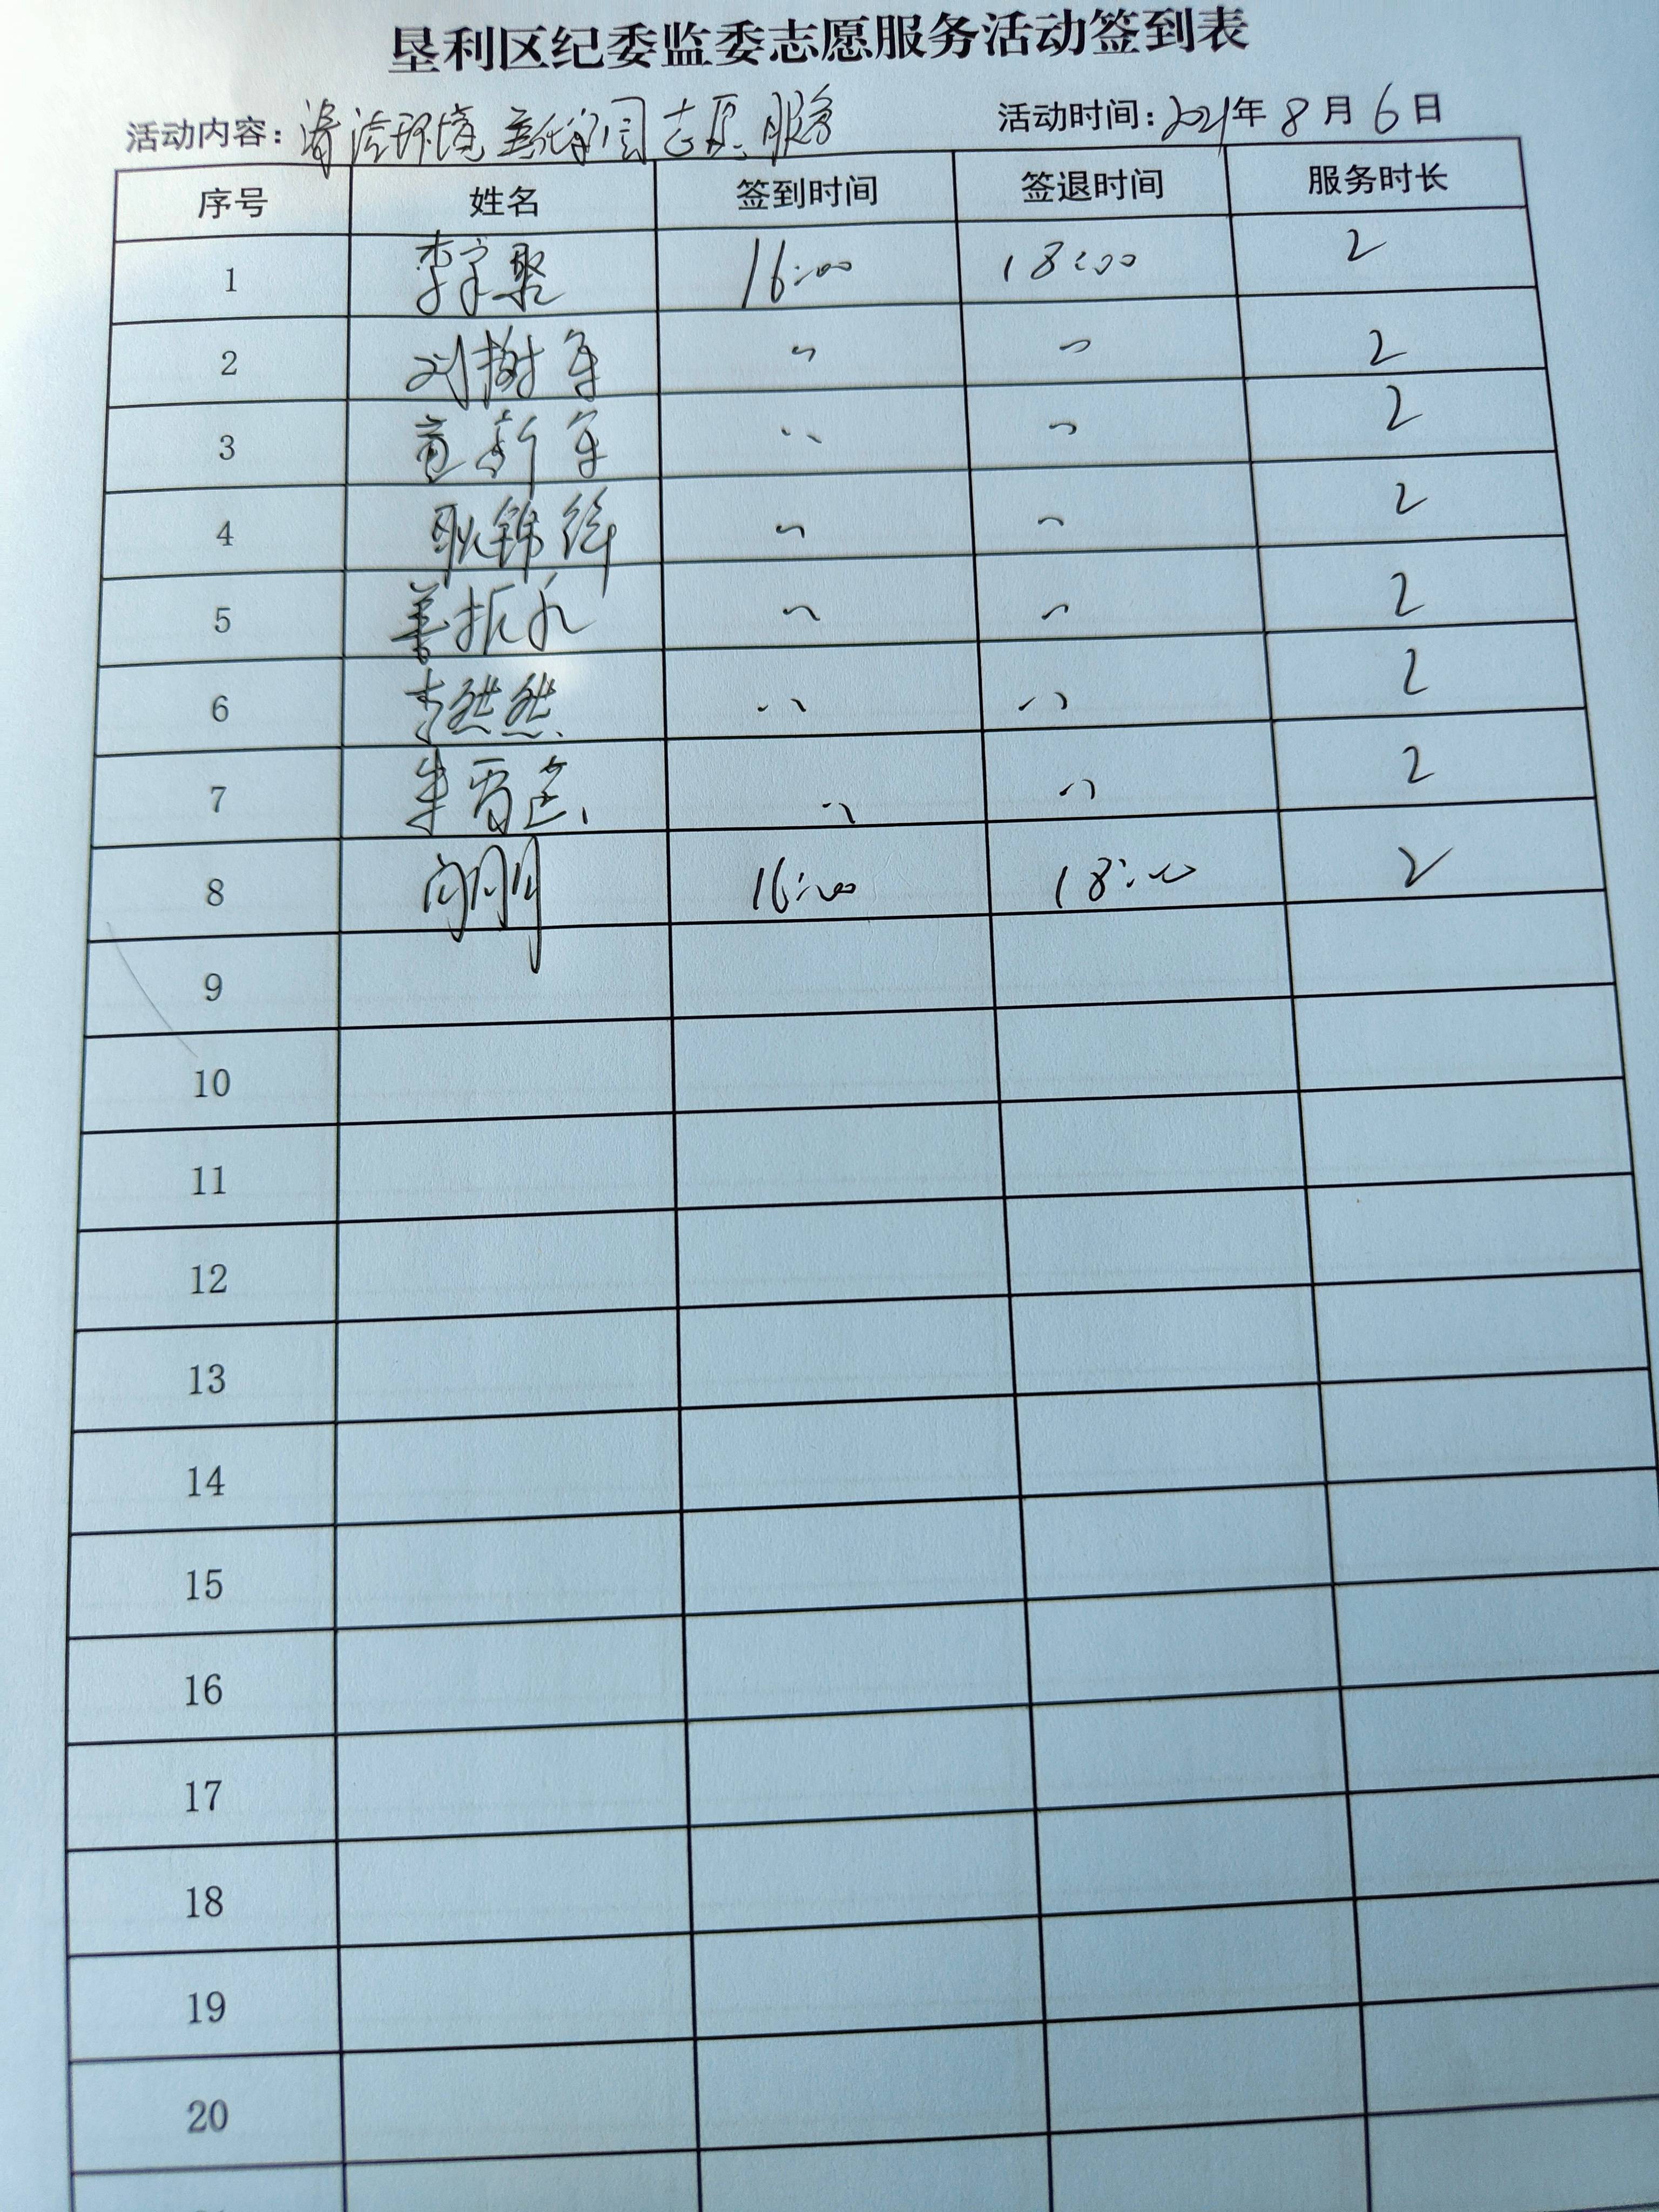 垦利区纪委监委志愿服务活动签到表
活动内容：清洁环境 美化家园 志愿服务 活动时间：2021年8月6日
序号 姓名 签到时间 签退时间 服务时长
1 16:00 18:00 2
2 刘树军 〃 〃 2
3 〃 〃 2
4 耿锦 〃 〃 2
5 振 〃 〃 2
6 李然然 〃 〃 2
7 〃 〃 2
8 16:00 18:00 2
9
10
11
12
13
14
15
16
17
18
19
20